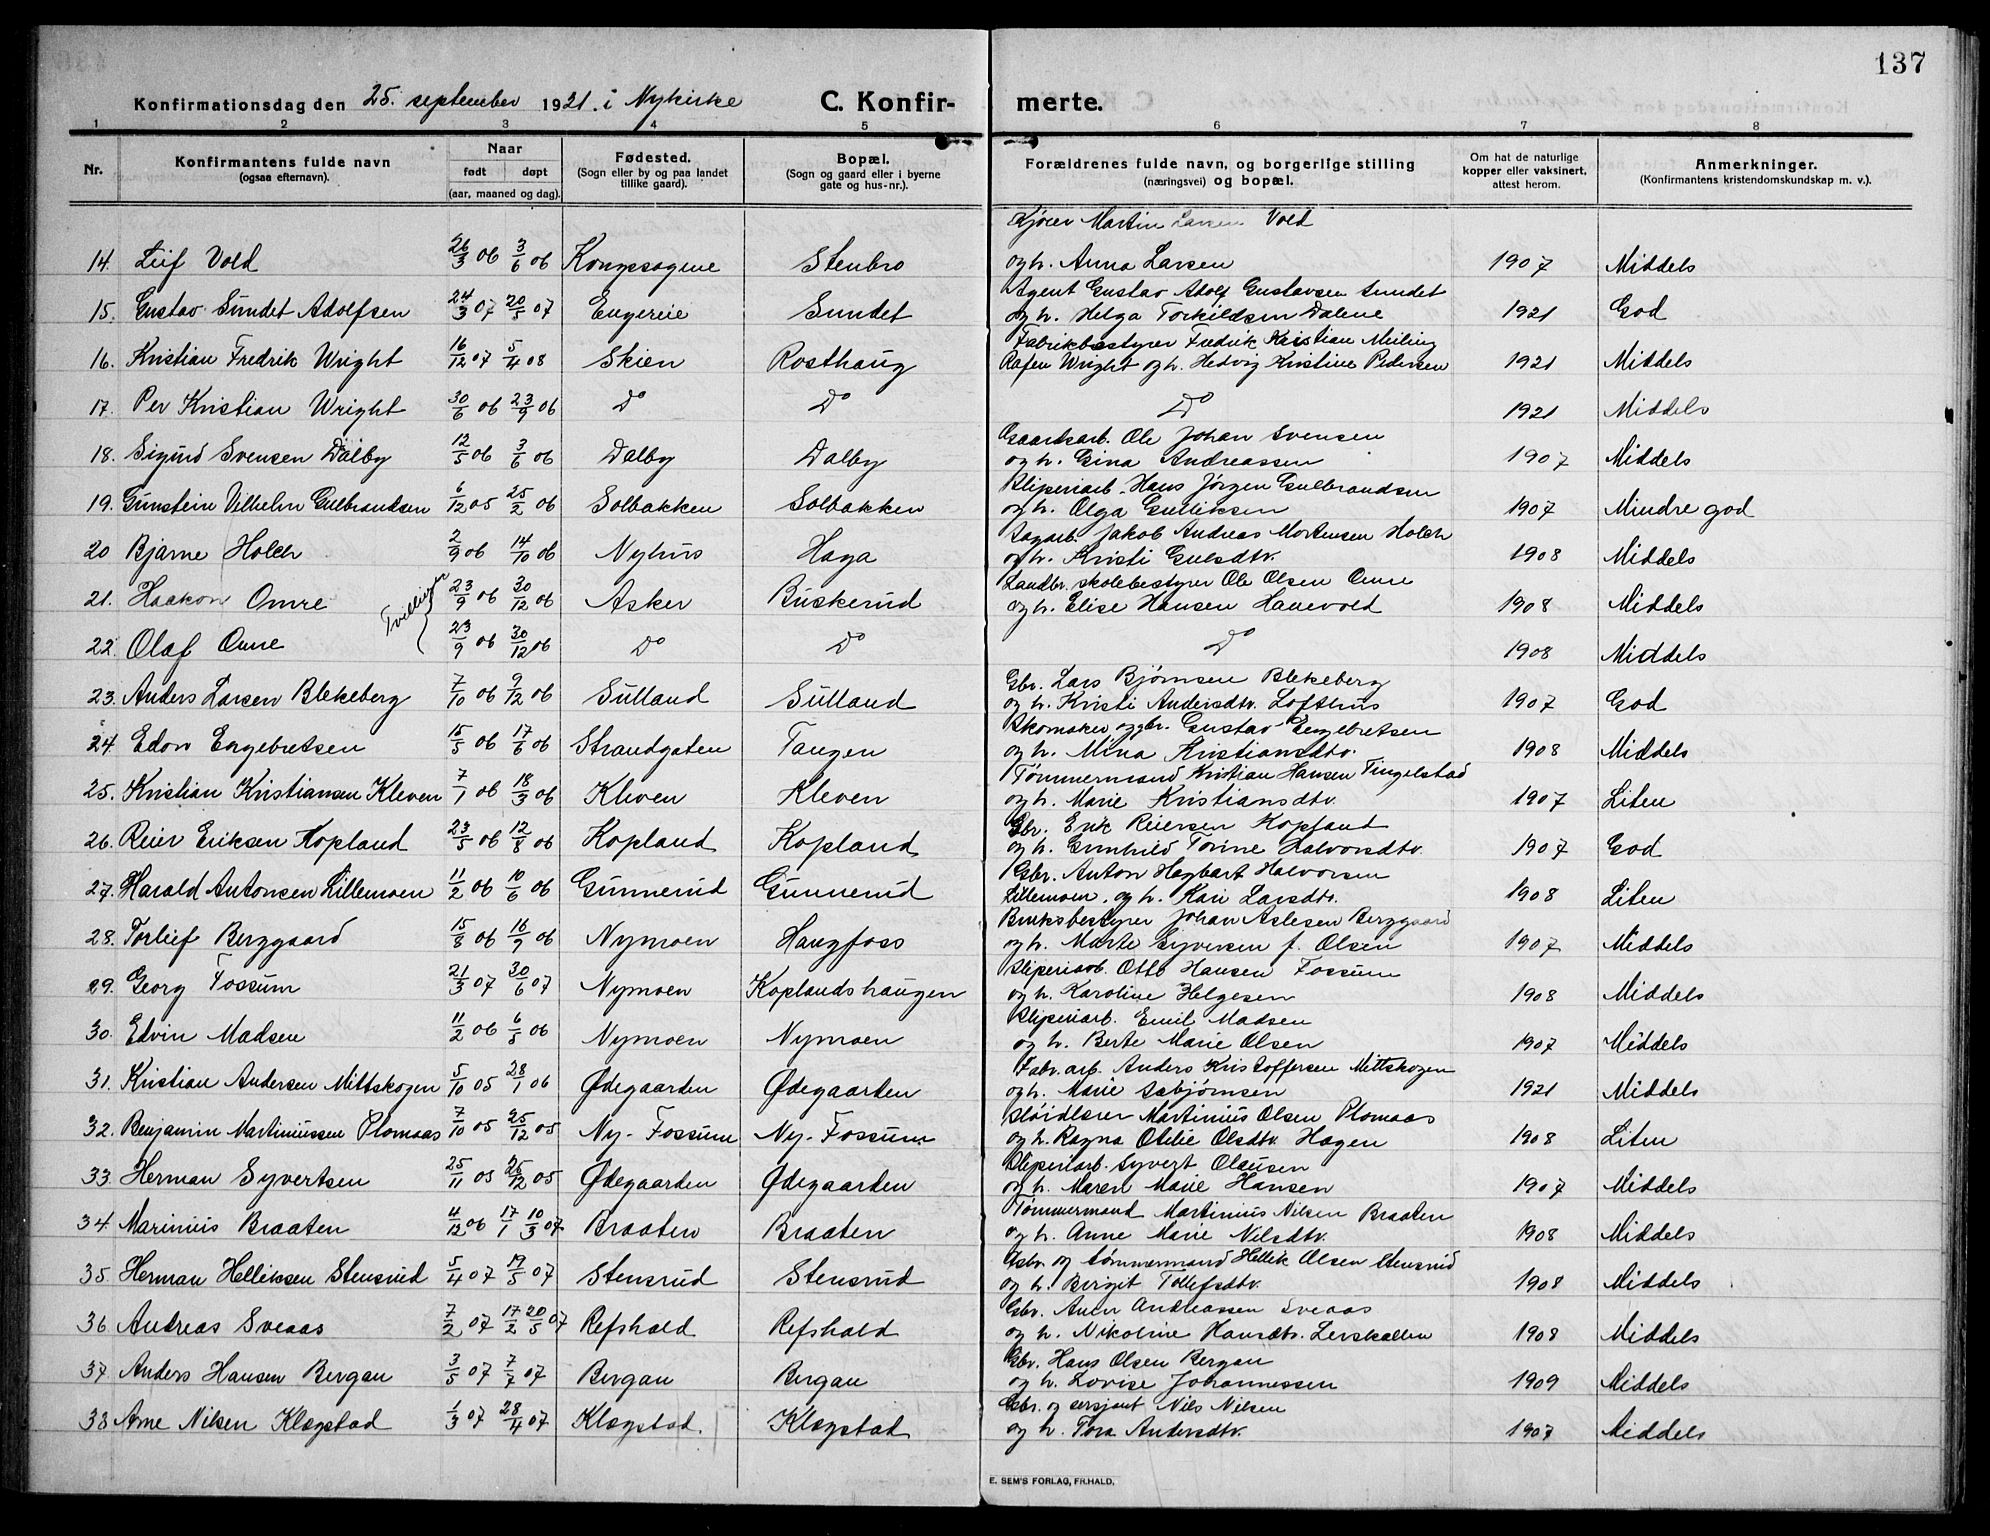 137
Konfirmationsdag den 25. september 1921. i Nykirke C. Konfir- merte.
1 2 3 4 5 6 7 8
Nr. Konfirmantens fulde navn (ogsaa efternavn). Naar født døpt (aar, maaned og dag). Fødested. (Sogn eller by og paa landet tillike gaard). Bopæl. (Sogn og gaard eller i byerne gate og hus-nr.). Forældrenes fulde navn, og borgerlige stilling (næringsvei) og bopæl. Om hat de naturlige kopper eller vaksinert, attest herom. Anmerkninger. (Konfirmantens kristendomskundskap m. v.).
Kjører Martin Larsen Vold
14. Leif Vold 26/3 06 3/6 06 Kongssogne Stenbro og h. Anna Larsen 1907 Middels
Agent Gustav Adolf Gustavsen Sundet
15. Gustav Sundet Adolfsen 24/3 07 20/5 07 Engereie Sundet og h. Helga Torkildsen Dalene 1921 God
Fabrikbestyrer Fredrik Kristian Meiling
16. Kristian Fredrik Wright 16/12 07 5/4 08 Skien Rosthaug Rafen Wright og h. Hedvig Kristine Pedersen 1921 Middels
17. Per Kristian Wright 30/6 06 23/9 06 Do Do Do 1921 Middels
Gaardsarb. Ole Johan Svensen
18. Sigurd Svensen Dalby 12/5 06 3/6 06 Dalby Dalby og h. Gina Andreassen 1907 Middels
Sliperiarb. Hans Jørgen Gulbrandsen
19. Gunstein Vilhelm Gulbrandsen 6/12 05 25/2 06 Solbakken Solbakken og h. Olga Gulliksen 1907 Mindre god
Sagarb. Jakob Andreas Mortensen Holch
20 Bjarne Holch 2/9 06 14/10 06 Nyhus Haga og h. Kristi Gulsdtr. 1908 Middels
Landbr. skolebestyrer Ole Olsen Omre
21. Haakon Omre Tvillinger 23/9 06 30/12 06 Asker Buskerud og h. Elise Hansen Hanevold 1908 Middels
22. Olaf Omre 23/9 06 30/12 06 Do Do Do 1908 Middels
Gbr. Lars Bjørnsen Blekeberg
23. Anders Larsen Blekeberg 7/10 06 9/12 06 Sulland Sulland og h. Kristi Andersdtr. Lofthus 1907 God
Skomaker og gbr. Gustav Engebretsen
24. Edon Engebretsen 15/5 06 17/6 06 Strandgaten Tangen og h. Mina Kristiansdtr. 1908 Middels
Tømmermand Kristian Hansen Tingelstad
25. Kristian Kristiansen Kleven 7/1 06 18/3 06 Kleven Kleven og h. Marie Kristiansdtr. 1907 Liten
Gbr. Erik Reiersen Kopland
26. Reier Eriksen Kopland 23/5 06 12/8 06 Kopland Kopland og h. Gunhild Torine Halvorsdtr. 1907 God
Gbr. Anton Hagbart Halvorsen
27. Harald Antonsen Lillemoen 11/2 06 10/6 06 Gunnerud Gunnerud Lillemoen, og h. Kari Larsdtr. 1908 Liten
Bruksbestyrer Johan Aslesen Berggaard
28. Torleif Berggaard 15/8 06 16/9 06 Nymoen Haugfoss og h. Marte Syversen f. Olsen 1907 Middels
Sliperiarb. Otto Hansen Fossum
29. Georg Fossum 21/3 07 30/6 07 Nymoen Koplandshaugen og h. Karoline Helgesen 1908 Middels
Sliperiarb. Emil Madsen
30. Edvin Madsen 11/2 06 6/5 06 Nymoen Nymoen og h. Berte Marie Olsen 1907 Middels
Fabr. arb. Anders Kristoffersen Mittskogen
31. Kristian Andersen Mittskogen 5/10 05 28/1 06 Ødegaarden Ødegaarden og h. Marie Esbjørnsen 1921 Middels
Sløidlærer Martinius Olsen Plomaas
32. Benjamin Martiniussen Plomaas 7/10 05 25/12 05 Ny-Fossum Ny-Fossum og h. Ragna Otilie Olsdtr. Hagen 1908 Liten
Sliperiarb. Syvert Olausen
33. Herman Syvertsen 25/11 05 26/12 05 Ødegaarden Ødegaarden og h. Maren Marie Hansen 1907 Middels
Tømmermand Martinius Nilsen Braaten
34. Marinius Braaten 4/12 06 17/1 10/3 07 Braaten Braaten og h. Anne Marie Nilsdtr. 1908 Middels
Gbr. og tømmermand Hellik Olsen Stensrud
35. Herman Helliksen Stensrud 5/4 07 19/5 07 Stensrud Stensrud og h. Birgit Tollefsdtr. 1908 Middels
Gbr. Anen Andreassen Sveaas
36. Andreas Sveaas 7/2 07 17/2 20/5 07 Refshald Refshald og h. Nikoline Hansdtr. Lerskallen 1908 Middels
Gbr. Hans Olsen Bergan
37. Anders Hansen Bergan 3/5 07 7/7 07 Bergan Bergan og h. Lovise Johannessen 1909 Middels
Gbr. og sersjant Nils Nilsen
38. Arne Nilsen Klægstad 1/3 07 28/4 07 Klægstad. Klægstad og h. Tora Andersdtr. 1907 Middels
E. SEM'S FORLAG, FR.HALD.